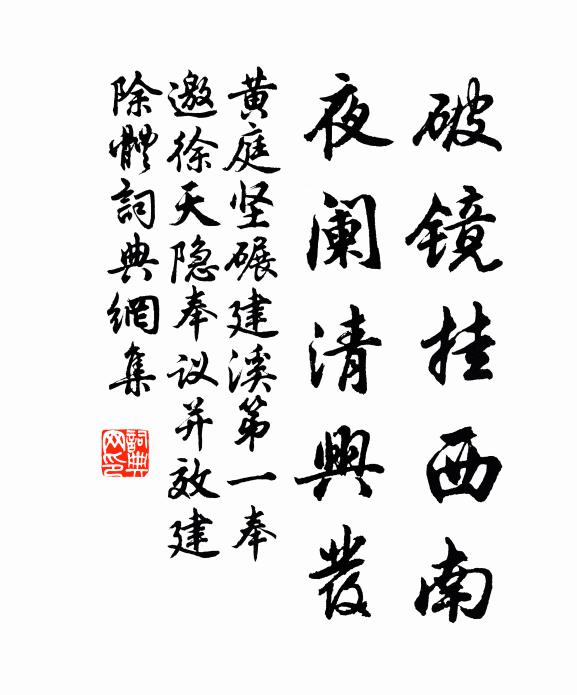 破镜挂西南
夜阑清興發
黄庭坚碾建溪第一奉
邀徐天隐奉议并效建
除體詞典網集
詞典网印